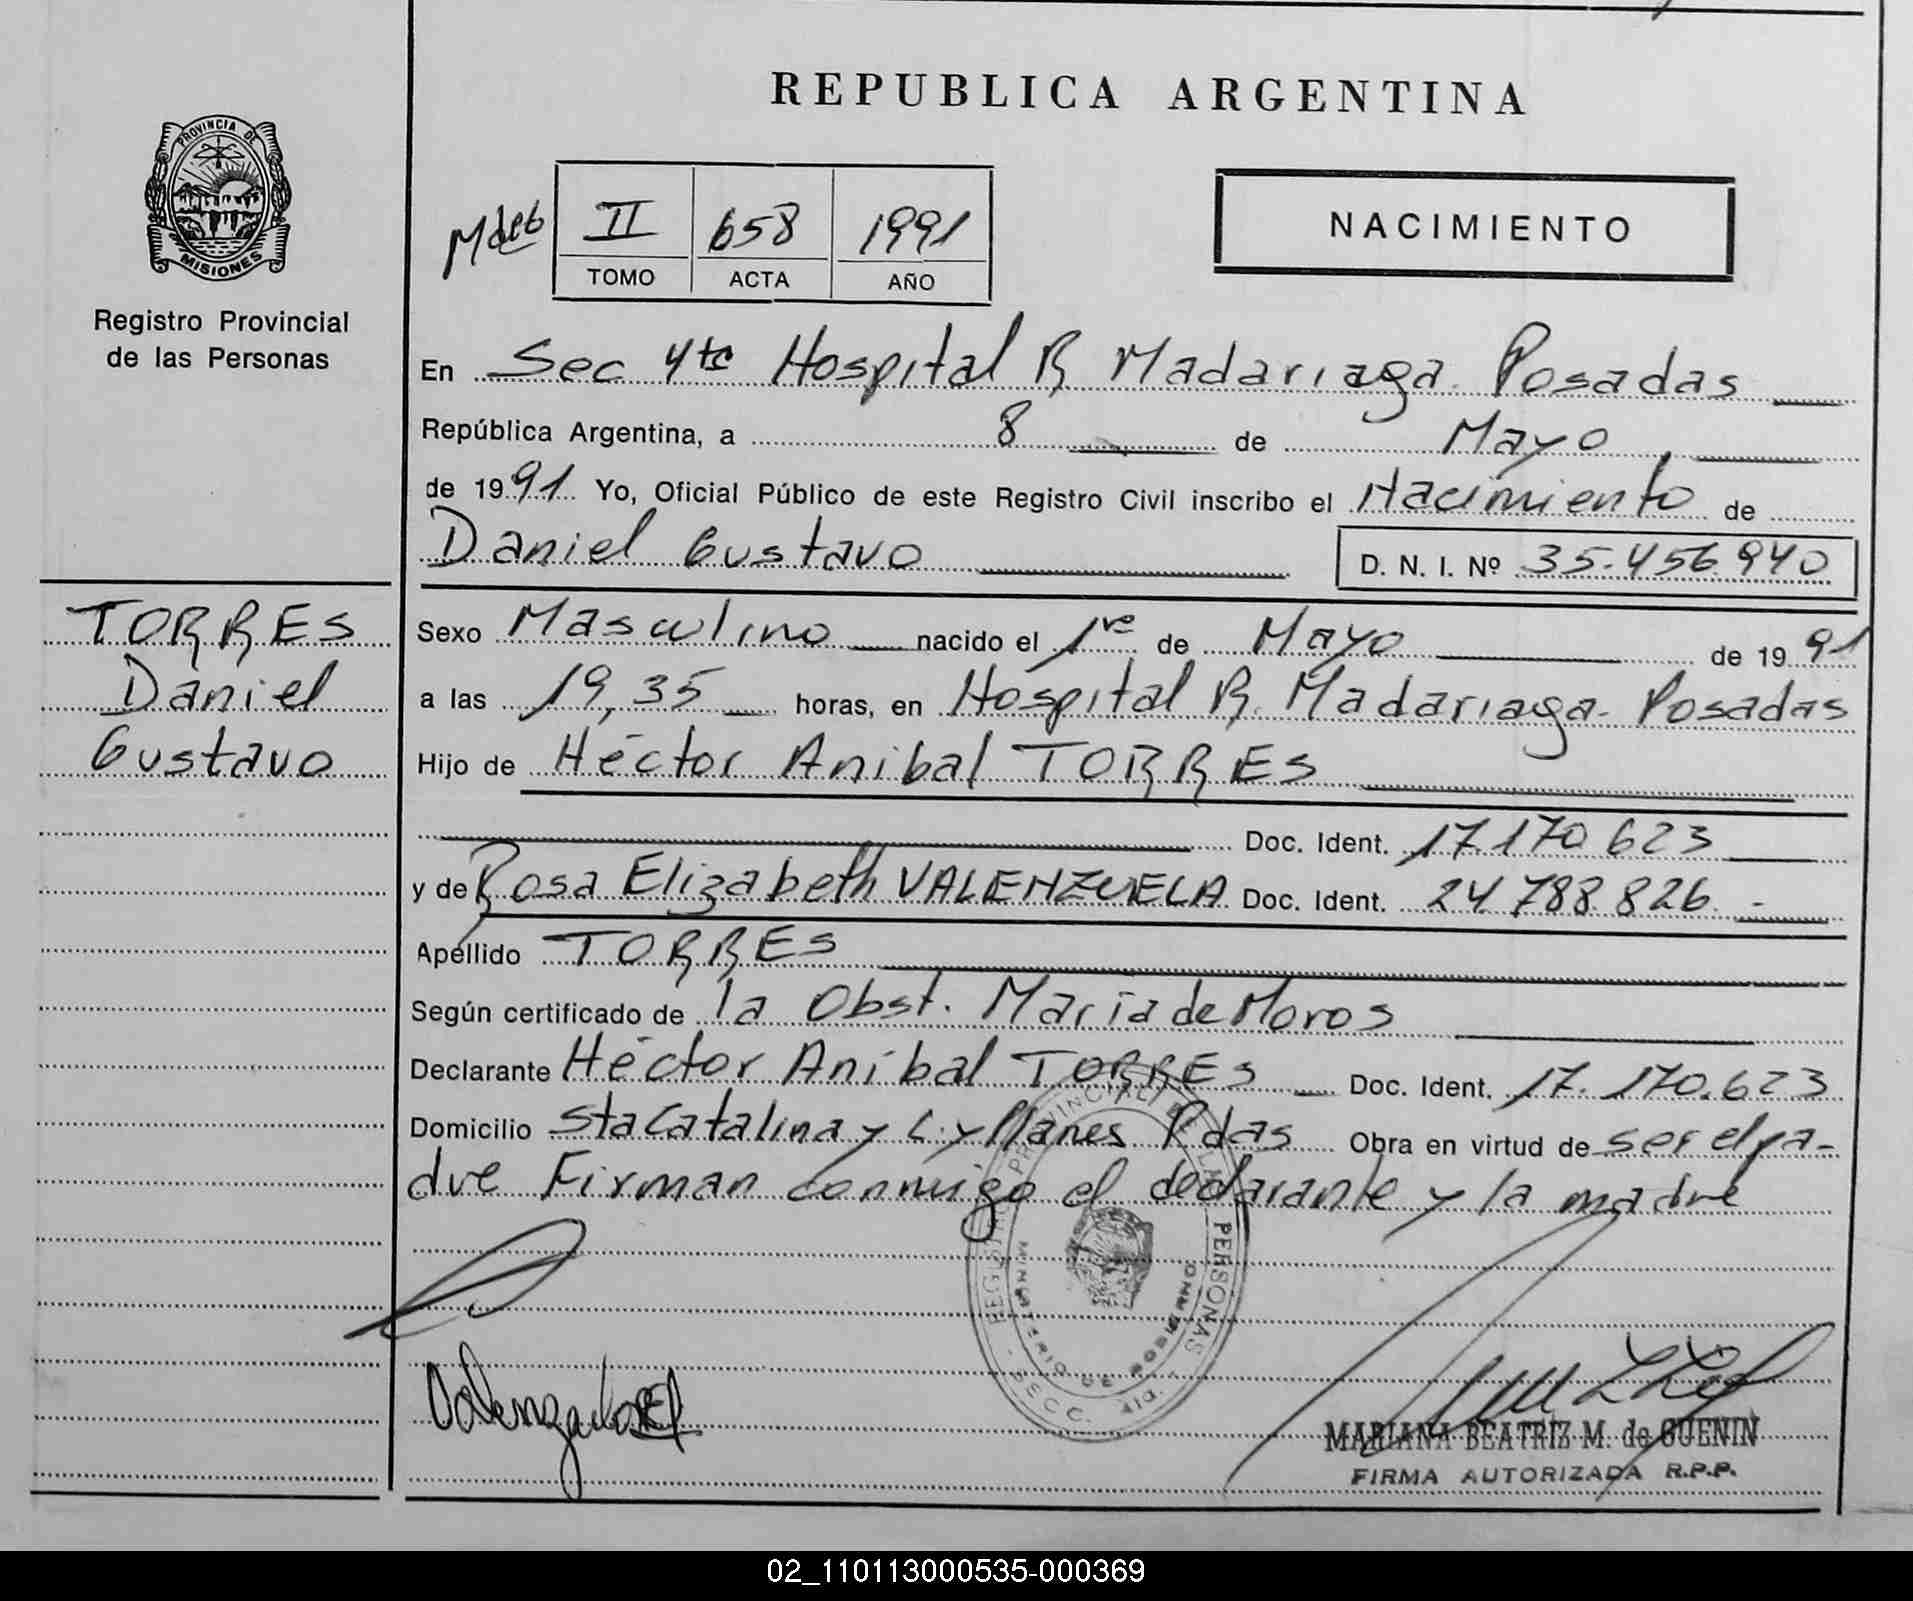 REPUBLICA ARGENTINA
PROVINCIA DE MISIONES
Registro Provincial
de las Personas
II 658 1991
TOMO ACTA AÑO
NACIMIENTO
En Sec 4ta Hospital R Madariaga. Posadas
República Argentina, a 8 de Mayo
de 1991 Yo, Oficial Público de este Registro Civil inscribo el Nacimiento de
Daniel Gustavo D. N. I. Nº 35.456.940
TORRES
Daniel
Gustavo
Sexo Masculino nacido el 1ro de Mayo de 1991
a las 19,35 horas, en Hospital R. Madariaga. Posadas
Hijo de Héctor Anibal TORRES
Doc. Ident. 17.170.623
y de Rosa Elizabeth VALENZUELA Doc. Ident. 24.788.826.-
Apellido TORRES
Según certificado de la Obst. Maria de Moros
Declarante Héctor Aníbal TORRES Doc. Ident. 17.170.623
Domicilio Sta Catalina y L. y Planes Pdas Obra en virtud de ser el pa-
dre Firman conmigo el declarante y la madre
REGISTRO PROVINCIAL DE LAS PERSONAS
MINISTERIO DE GOBIERNO
SECC. 4ta.
MARIANA BEATRIZ M. de GUENIN
FIRMA AUTORIZADA R.P.P.
02_110113000535-000369